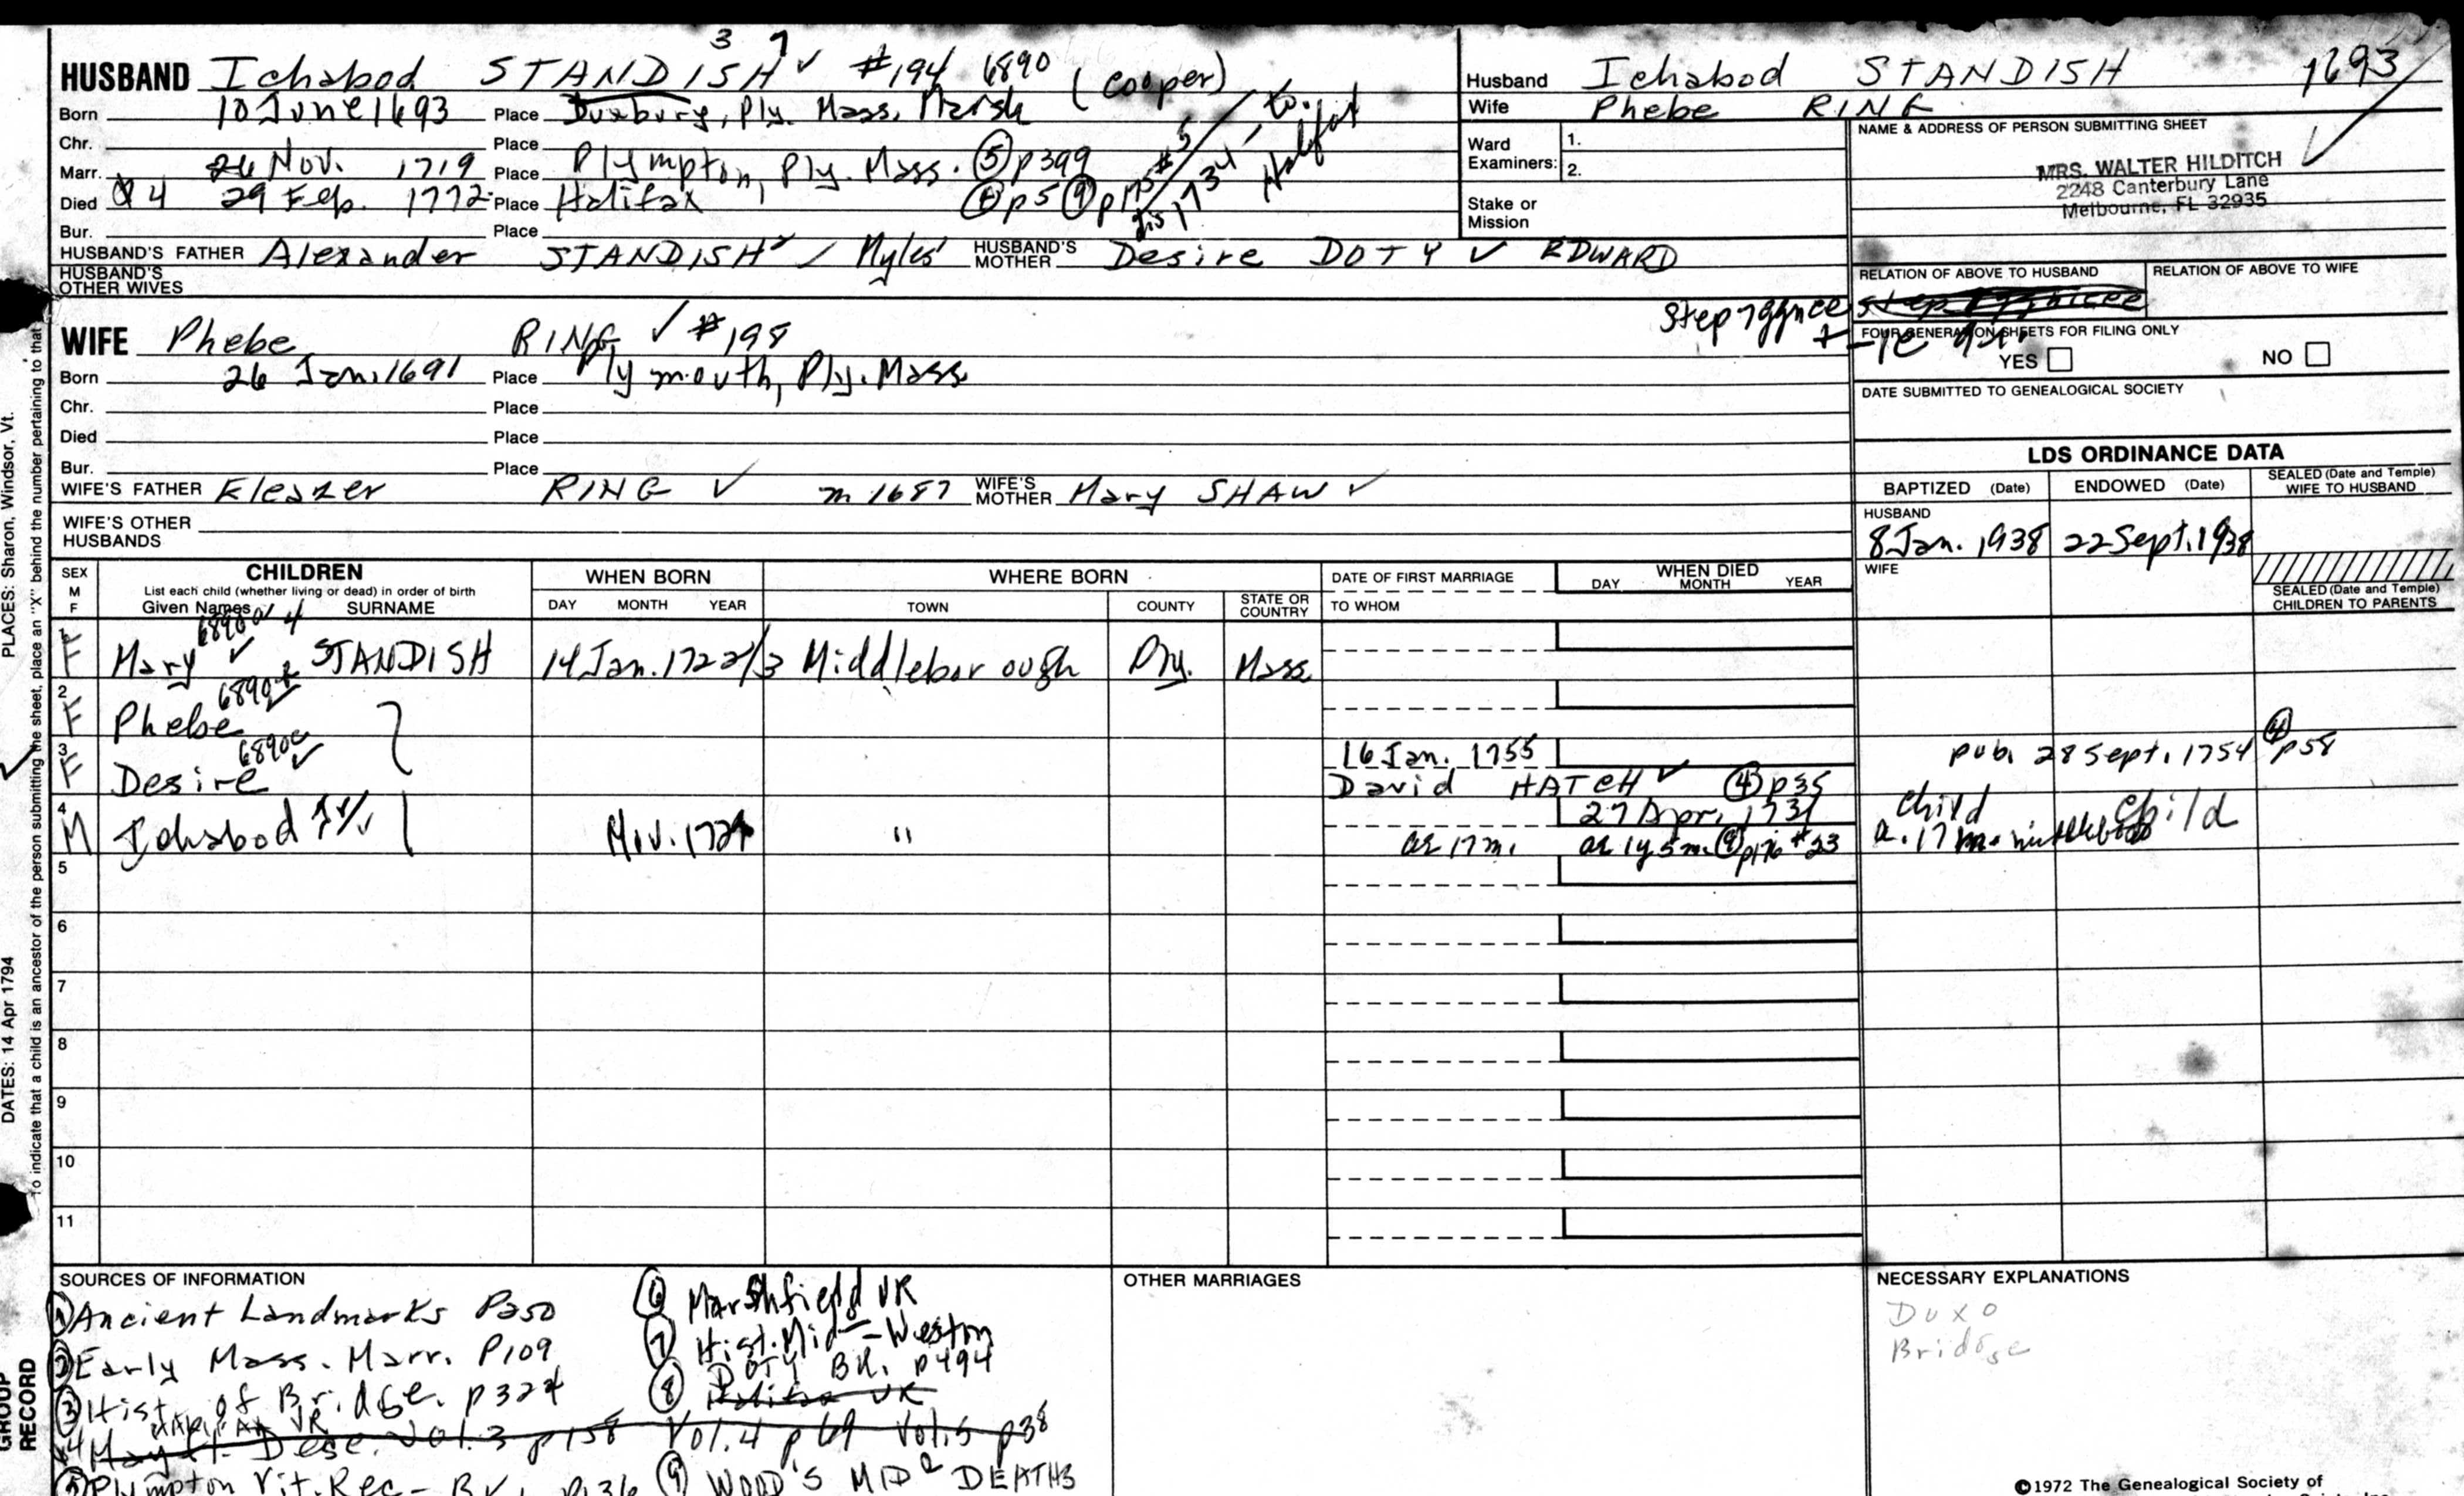 HUSBAND Ichabod STANDISH 3 7 ✓ #194 6890 (Cooper)
Born 10 June 1693 Place Duxbury, Ply. Mass, Marsh
Chr. Place
Marr. 26 Nov. 1719 Place Plympton, Ply. Mass. ⑤ p399
Died 29 Feb. 1772 Place Halifax
Bur. Place
HUSBAND'S FATHER Alexander STANDISH ✓ / Myles HUSBAND'S MOTHER Desire DOTY ✓ EDWARD
HUSBAND'S OTHER WIVES
Husband Ichabod STANDISH 1693
Wife Phebe RING
Ward Examiners: 1.
2.
Stake or Mission
NAME & ADDRESS OF PERSON SUBMITTING SHEET
MRS. WALTER HILDITCH
2248 Canterbury Lane
Melbourne, FL 32935
RELATION OF ABOVE TO HUSBAND RELATION OF ABOVE TO WIFE
FOUR GENERATION SHEETS FOR FILING ONLY
YES NO
DATE SUBMITTED TO GENEALOGICAL SOCIETY
WIFE Phebe RING ✓ #198
Born 26 Jan. 1691 Place Plymouth, Ply. Mass
Chr. Place
Died Place
Bur. Place
WIFE'S FATHER Eleazer RING ✓ m 1687 WIFE'S MOTHER Mary SHAW ✓
WIFE'S OTHER HUSBANDS
LDS ORDINANCE DATA
BAPTIZED (Date) ENDOWED (Date) SEALED (Date and Temple) WIFE TO HUSBAND
HUSBAND
8 Jan. 1938 22 Sept. 1938
WIFE
SEALED (Date and Temple) CHILDREN TO PARENTS
SEX M F CHILDREN WHEN BORN WHERE BORN DATE OF FIRST MARRIAGE WHEN DIED
List each child (whether living or dead) in order of birth
Given Names SURNAME DAY MONTH YEAR TOWN COUNTY STATE OR COUNTRY TO WHOM DAY MONTH YEAR
1 F Mary ✓ STANDISH 14 Jan. 1722/3 Middleborough Ply. Mass
2 F Phebe
3 F Desire 6890c ✓ 16 Jan. 1755 pub. 28 Sept. 1754 ④ p58
David HATCH ✓ ④ p35
4 M Ichabod Nov. 1729 " 27 Apr. 1731 child child
ae 17 m. ae 1y 5m. ⑨ p176 #23
5
6
7
8
9
10
11
SOURCES OF INFORMATION
① Ancient Landmarks P250
② Early Mass. Marr. P109
③ Hist. of Bridge. p324
HALIFAX VR
④ May fl. Desc. Vol. 3 p158 Vol. 4 p69 Vol. 5 p38
⑤ Plympton Vit. Rec- p136
⑥ Marshfield VR
⑦ Hist. Mid - Weston
⑧ DOTY BK. p494
Halifax VR
⑨ WOOD'S MID DEATHS
OTHER MARRIAGES
NECESSARY EXPLANATIONS
Duxo
Bridge
©1972 The Genealogical Society of
PLACES: Sharon, Windsor, Vt.
DATES: 14 Apr 1794
To indicate that a child is an ancestor of the person submitting the sheet, place an "X" behind the number pertaining to that
GROUP RECORD